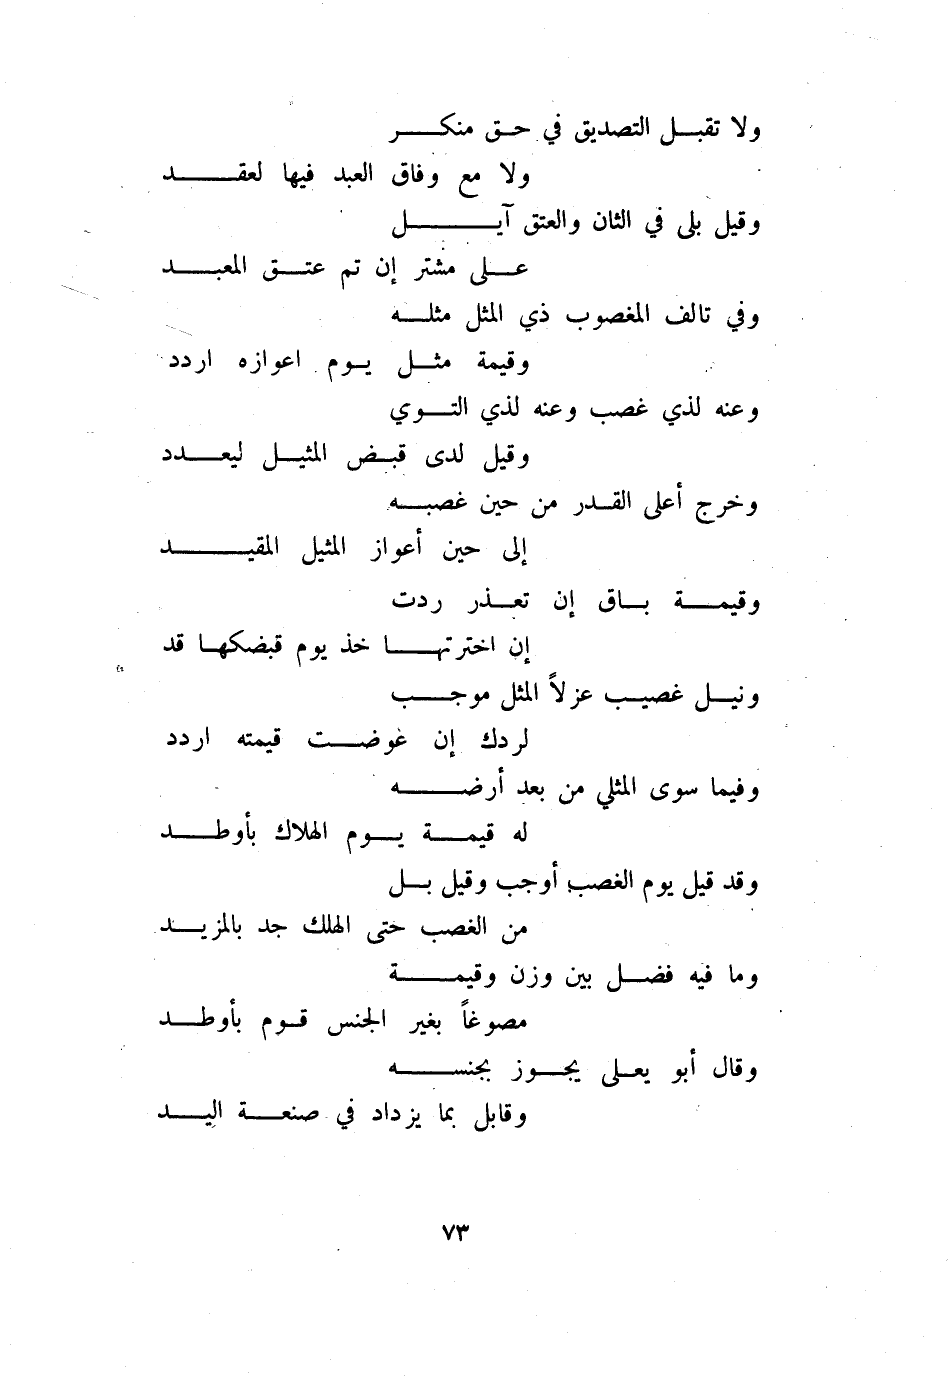 ولا تقبل التصديق في حق منكر
ولا مع وفاق العبد فيها لعقد
وقيل بلى في الثان والعتق آيل
على مشتر إن تم عتق المعبد
وفي تالف المغصوب ذي المثل مثله
وقيمة مثل يوم اعوازه اردد
وعنه لذي غصب وعنه لذي التوي
وقيل لدى قبض المثيل ليعدد
وخرج أعلى القدر من حين غصبه
إلى حين أعواز المثيل المقيد
وقيمة باق إن تعذر ردت
إن اخترتها خذ يوم قبضكها قد
ونيل غصيب عزلاً المثل موجب
لردك إن غوضت قيمته اردد
وفيما سوى المثلي من بعد أرضه
له قيمة يوم الهلاك بأوطد
وقد قيل يوم الغصب أوجب وقيل بل
من الغصب حتى الهلك جد بالمزيد
وما فيه فضل بين وزن وقيمة
مصوغاً بغير الجنس قوم بأوطد
وقال أبو يعلى يجوز بجنسه
وقابل بما يزداد في صنعة اليد
٧٣